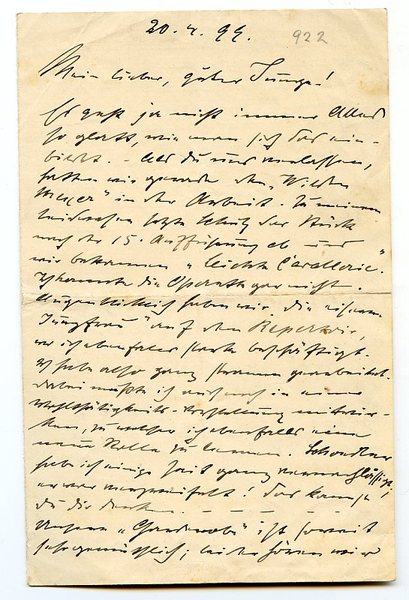 20. 4. 94. 922
Mein lieber, guter Junge!
Es geht ja nicht immer Alles
so glatt, wie man sich das ein-
bildet. – Als du uns verlassen,
hatten wir gerade den „Wilden
in der Arbeit. Zu meinem
setzte das Stück
nach der 15. Aufführung ab und
wir bekamen „leichte Cavallerie".
Ich kannte die Operette gar nicht.
Augenblicklich haben wir die
Jungfrau" auf dem Repertoir,
wo ich ebenfalls stark beschäftigt.
Ich habe also ganz stramm gearbeitet.
Dabei mußte ich auch noch in einer
Wohlthätigkeits-Vorstellung mitwir-
ken, zu welcher ich ebenfalls eine
neue Rolle zu lernen.
habe ich einige Zeit ganz vernachlässigt,
er war verzweifelt! Das kannst
du dir denken. – – – – –
Unsere ist soweit
sehr gemütlich; leider hören wir